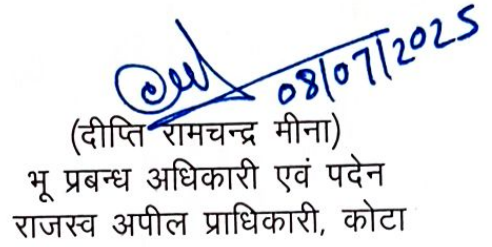 08/07/2025
(दीप्ति रामचन्द्र मीना)
भू प्रबन्ध अधिकारी एवं पदेन
राजस्व अपील प्राधिकारी, कोटा